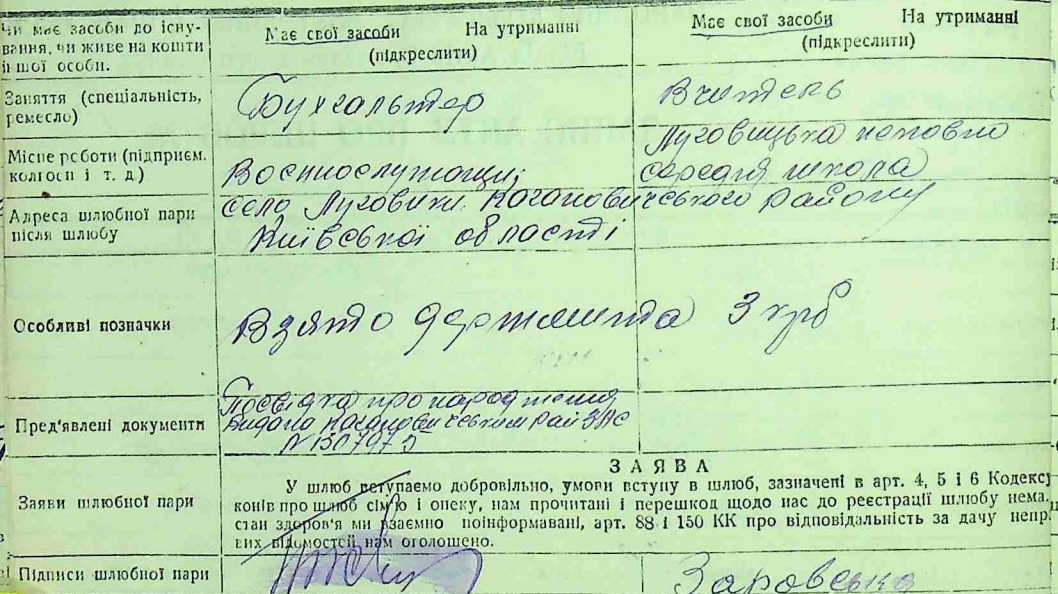 Чи має засоби до існу-
вання, чи живе на кошти
іншої особи.
Має свої засоби На утриманні
(підкреслити)
Має свої засоби На утриманні
(підкреслити)
Заняття (спеціальність,
ремесло)
Бухгальтер
Вчитель
Місце роботи (підприєм.
колгосп і т. д.)
Военнослужащи,
Луговицька неповно
середня школа
Адреса шлюбної пари
після шлюбу
село Луговики Кагановичського району
Київської області
Особливі позначки
Взято держмита 3 крб
Пред'явлені документи
Посвідка про народження
видана Кагановичським Рай ЗАГС
N
Заяви шлюбної пари
ЗАЯВА
У шлюб вступаємо добровільно, умови вступу в шлюб, зазначені в арт. 4, 5 і 6 Кодексу
конів про шлюб сім'ю і опеку, нам прочитані і перешкод щодо нас до реєстрації шлюбу нема.
стан здоров'я ми взаємно поінформавані, арт. 88 і 150 КК про відповідальність за дачу непра
вих відомостей нам оголошено.
Підписи шлюбної пари
Заровська